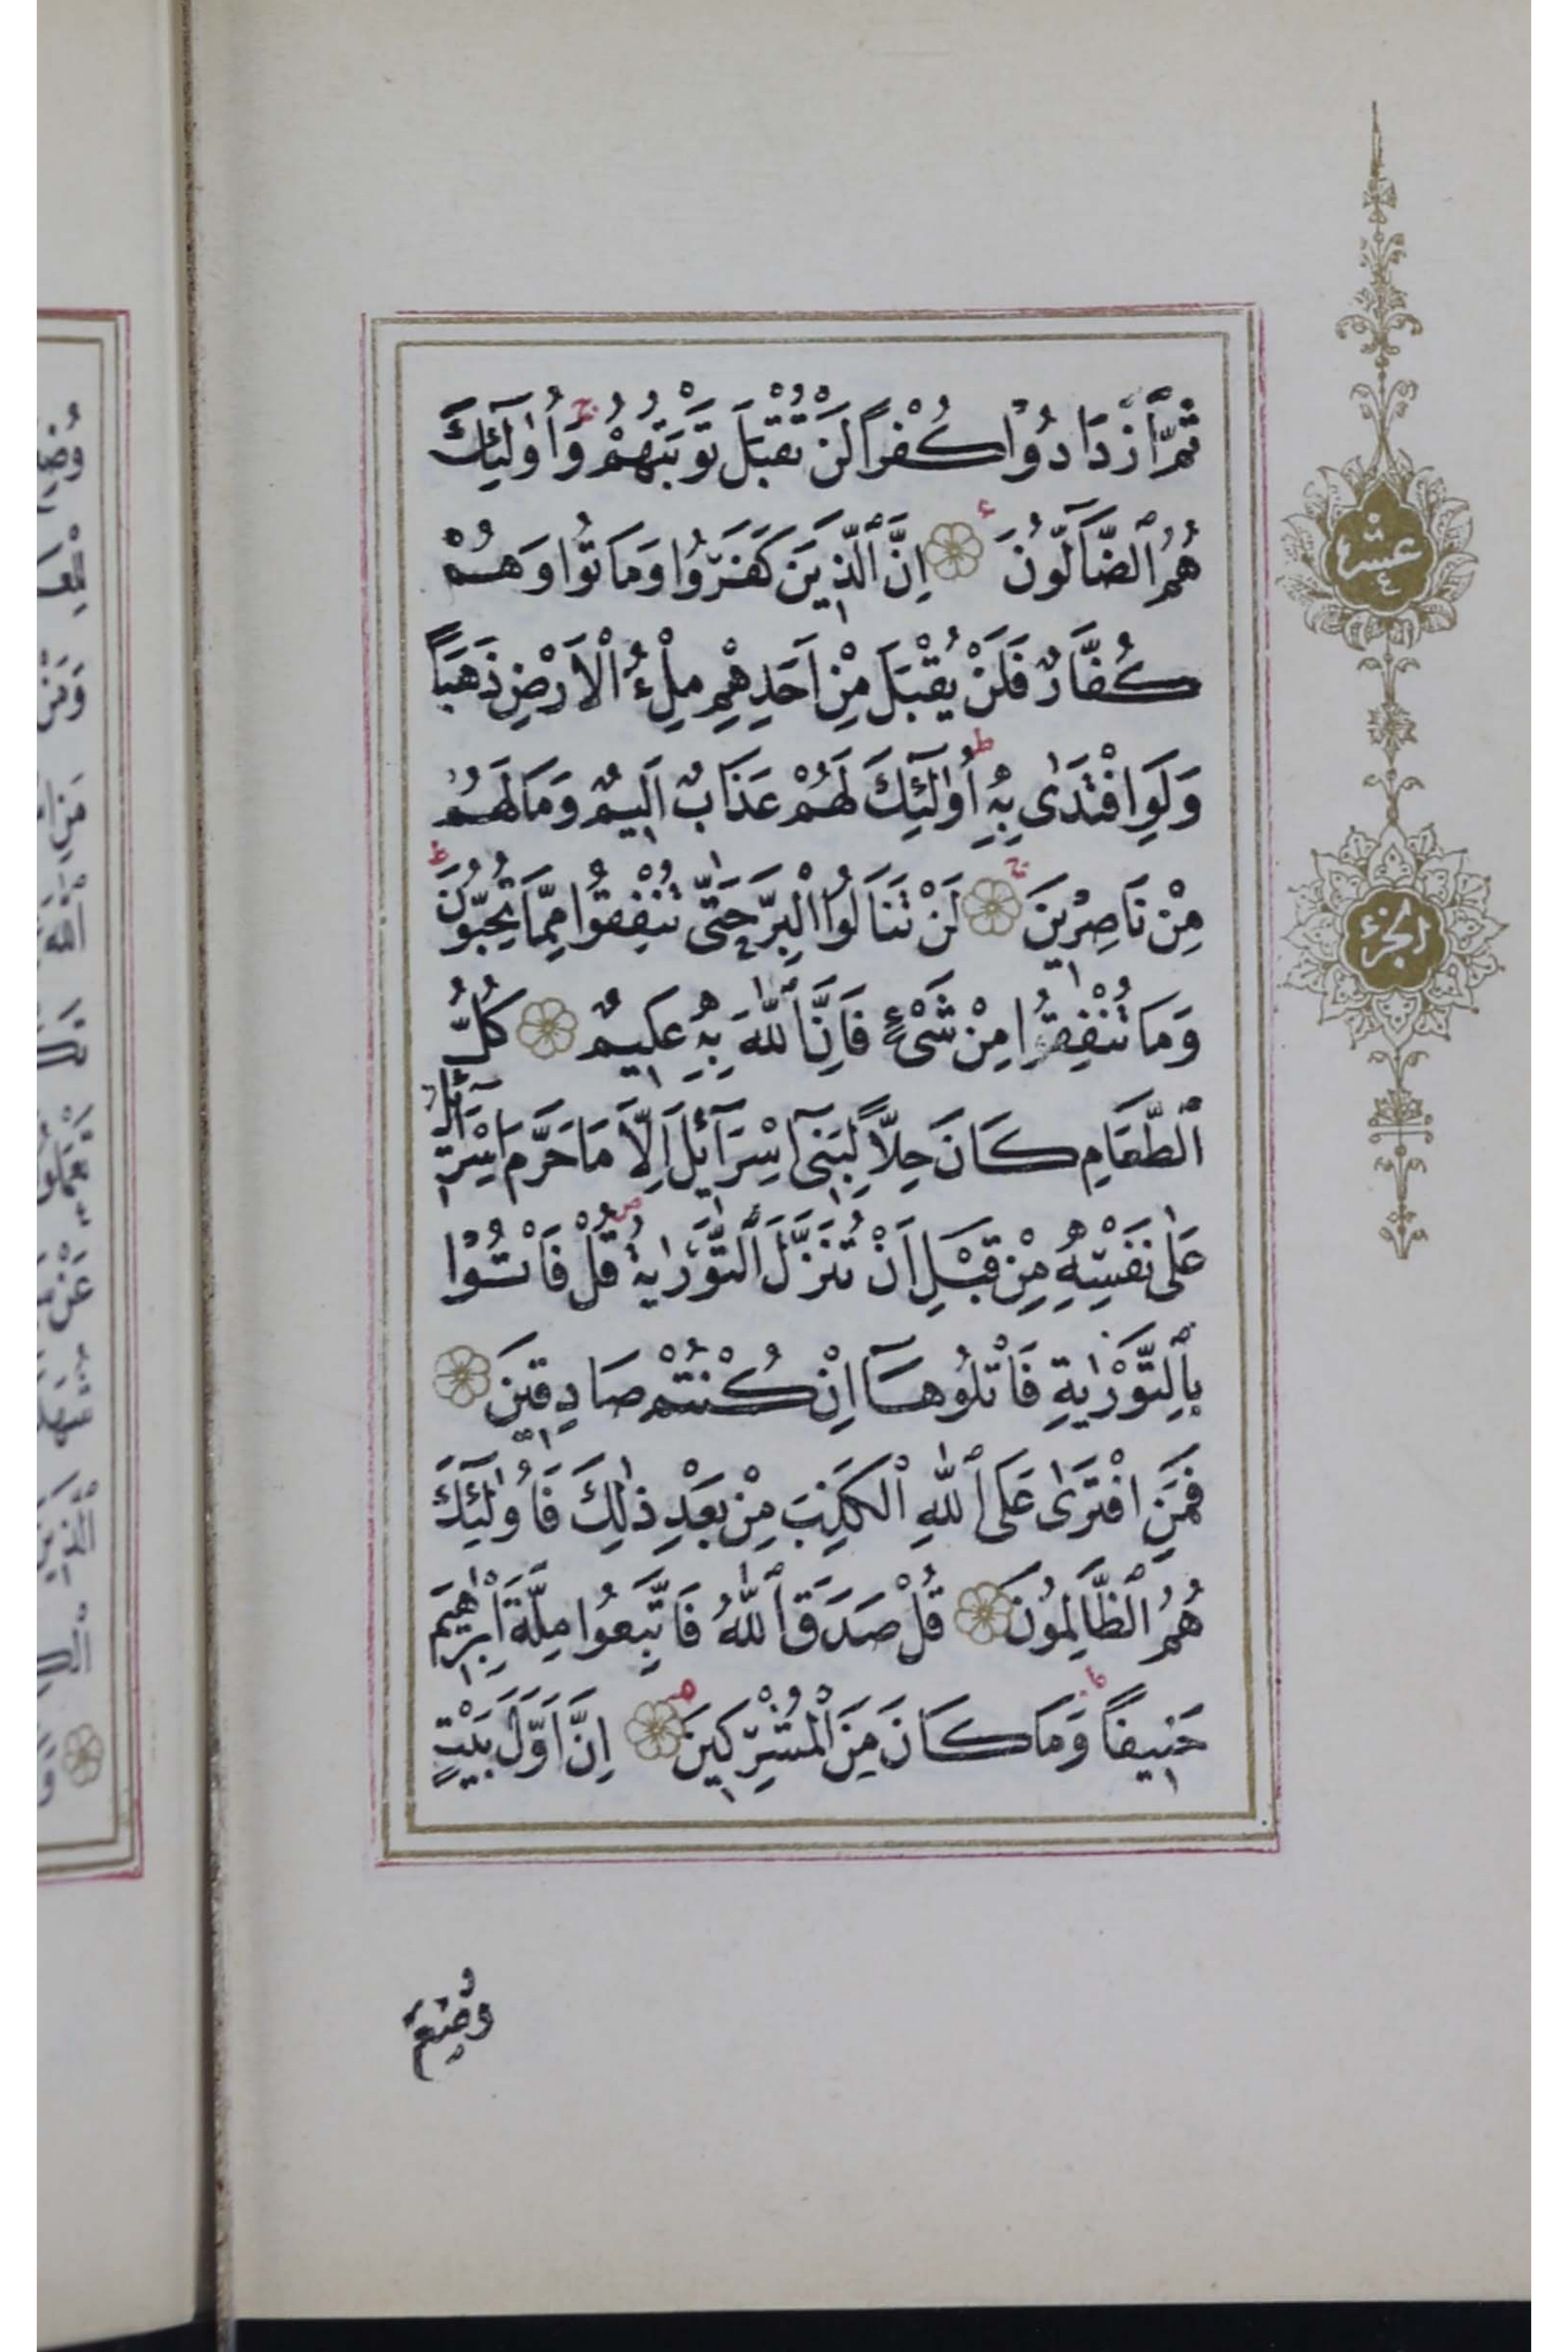 ثُمَّ ٱزْدَادُوْا كُفْراً لَنْ تُقْبَلَ تَوْبَتُهُمْ ج وَاُولٰٓئِكَ
هُمُ ٱلضَّآلُّونَ ۝ اِنَّ ٱلَّذِينَ كَفَرُوا وَمَاتُوا وَهُمْ
كُفَّارٌ فَلَنْ يُقْبَلَ مِنْ اَحَدِهِمْ مِلْءُ الْاَرْضِ ذَهَبًا
وَلَوِ افْتَدٰى بِهِ ط اُولٰٓئِكَ لَهُمْ عَذَابٌ اَلِيمٌ وَمَا لَهُمْ
مِنْ نَاصِرِينَ ۝ لَنْ تَنَالُوا الْبِرَّ حَتّٰى تُنْفِقُوا مِمَّا تُحِبُّونَ ط
وَمَا تُنْفِقُوا مِنْ شَىْءٍ فَاِنَّ ٱللّٰهَ بِهِ عَلِيمٌ ۝ كُلُّ
ٱلطَّعَامِ كَانَ حِلاًّ لِبَنِىٓ اِسْرَآئِلَ اِلَّا مَا حَرَّمَ اِسْرَآئِلُ
عَلٰى نَفْسِهِ مِنْ قَبْلِ اَنْ تُنَزَّلَ ٱلتَّوْرٰيةُ ط قُلْ فَاْتُوْا
بِٱلتَّوْرٰيةِ فَاتْلُوهَآ اِنْ كُنْتُمْ صَادِقِينَ ۝
فَمَنِ افْتَرٰى عَلَى ٱللّٰهِ ٱلْكَذِبَ مِنْ بَعْدِ ذٰلِكَ فَاُولٰٓئِكَ
هُمُ ٱلظَّالِمُونَ ۝ قُلْ صَدَقَ ٱللّٰهُ فَاتَّبِعُوا مِلَّةَ اِبْرٰهِيمَ
حَنِيفاً ط وَمَا كَانَ مِنَ الْمُشْرِكِينَ ۝ اِنَّ اَوَّلَ بَيْتٍ
وُضِعَ
عشر
٤
الجزء